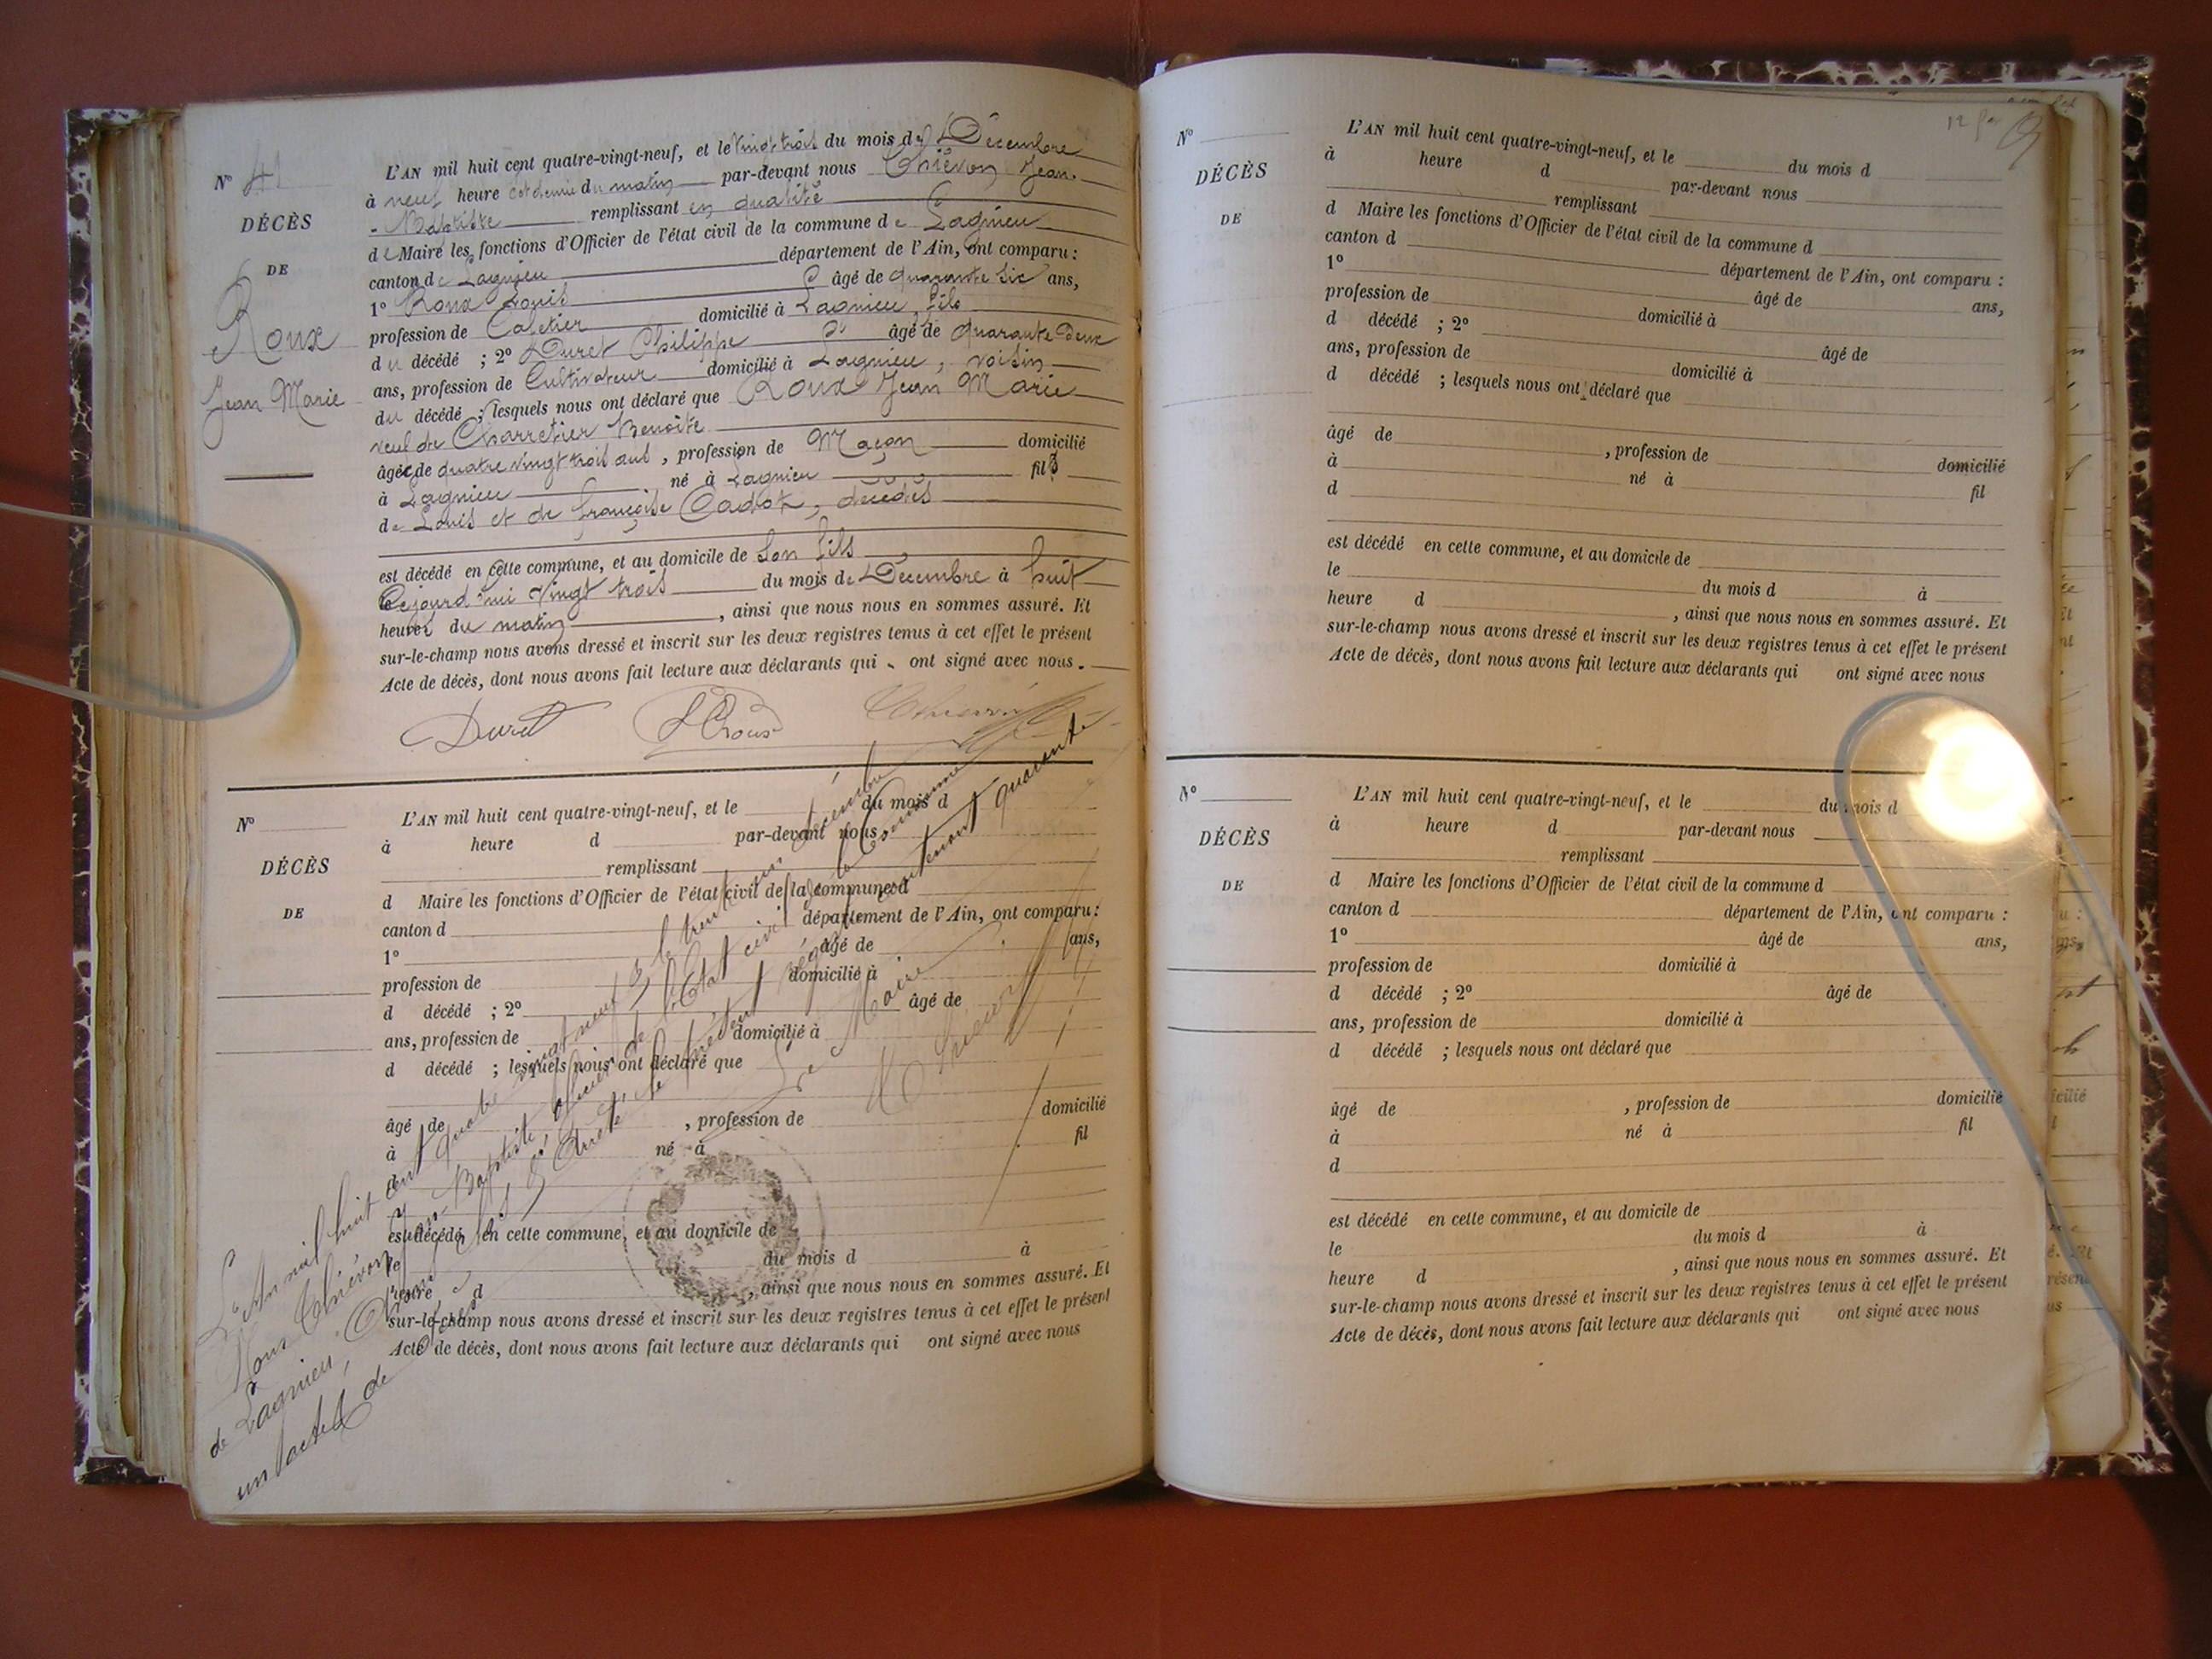 N° 41
DÉCÈS
DE
Roux
Jean Marie
L'AN mil huit cent quatre-vingt-neuf, et le vingt trois du mois de Décembre
à neuf heure et demie du matin par-devant nous Thiévon Jean-
-Baptiste remplissant en qualité
de Maire les fonctions d'Officier de l'état civil de la commune de Lagnieu
canton de Lagnieu département de l'Ain, ont comparu :
1° Roux Louis âgé de quarante six ans,
profession de Cafetier domicilié à Lagnieu, fils
du décédé ; 2° Duret Philippe âgé de quarante Deux
ans, profession de Cultivateur domicilié à Lagnieu, voisin
du décédé ; lesquels nous ont déclaré que Roux Jean Marie
veuf de Charretier Benoîte
âgé de quatre vingt trois ans, profession de Maçon domicilié
à Lagnieu né à Lagnieu fils
de Louis et de françoise Cadot, décédés
est décédé en cette commune, et au domicile de son fils
le cejourd'hui vingt trois du mois de Décembre à huit
heures du matin, ainsi que nous nous en sommes assuré. Et
sur-le-champ nous avons dressé et inscrit sur les deux registres tenus à cet effet le présent
Acte de décès, dont nous avons fait lecture aux déclarants qui ont signé avec nous.
Duret L Roux Thiévon
N°
DÉCÈS
DE
L'AN mil huit cent quatre-vingt-neuf, et le du mois d
à heure d par-devant nous
remplissant
d Maire les fonctions d'Officier de l'état civil de la commune d
canton d département de l'Ain, ont comparu :
1° âgé de ans,
profession de domicilié à
d décédé ; 2° âgé de
ans, profession de domicilié à
d décédé ; lesquels nous ont déclaré que
âgé de , profession de domicilié
à né à fil
d
est décédé en cette commune, et au domicile de
le du mois d à
heure d , ainsi que nous nous en sommes assuré. Et
sur-le-champ nous avons dressé et inscrit sur les deux registres tenus à cet effet le présent
Acte de décès, dont nous avons fait lecture aux déclarants qui ont signé avec nous
L'An mil huit cent quatre vingt neuf & le trente un décembre
Nous Thiévon Jean-Baptiste officier de l'État civil de la Commune
de Lagnieu, clos & arrêté le présent registre contenant quarante
un actes de
Le Maire
Thiévon
N°
DÉCÈS
DE
L'AN mil huit cent quatre-vingt-neuf, et le du mois d
à heure d par-devant nous
remplissant
d Maire les fonctions d'Officier de l'état civil de la commune d
canton d département de l'Ain, ont comparu :
1° âgé de ans,
profession de domicilié à
d décédé ; 2° âgé de
ans, profession de domicilié à
d décédé ; lesquels nous ont déclaré que
âgé de , profession de domicilié
à né à fil
d
est décédé en cette commune, et au domicile de
le du mois d à
heure d , ainsi que nous nous en sommes assuré. Et
sur-le-champ nous avons dressé et inscrit sur les deux registres tenus à cet effet le présent
Acte de décès, dont nous avons fait lecture aux déclarants qui ont signé avec nous
N°
DÉCÈS
DE
L'AN mil huit cent quatre-vingt-neuf, et le du mois d
à heure d par-devant nous
remplissant
d Maire les fonctions d'Officier de l'état civil de la commune d
canton d département de l'Ain, ont comparu :
1° âgé de ans,
profession de domicilié à
d décédé ; 2° âgé de
ans, profession de domicilié à
d décédé ; lesquels nous ont déclaré que
âgé de , profession de domicilié
à né à fil
d
est décédé en cette commune, et au domicile de
le du mois d à
heure d , ainsi que nous nous en sommes assuré. Et
sur-le-champ nous avons dressé et inscrit sur les deux registres tenus à cet effet le présent
Acte de décès, dont nous avons fait lecture aux déclarants qui ont signé avec nous